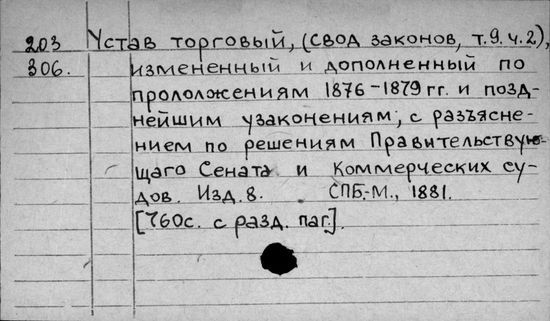 203 Устав торговый, (свод законов, т.9.ч.2),
306. измененный и дополненный по
прололожениям 1876-1879 гг. и позд-
нейшим узаконениям, с разъясне-
нием по решениям Правительствую-
щаго Сената и Коммерческих су-
дов. Изд. 8. СПБ.-М., 1881.
[760с. с разд. паг.].